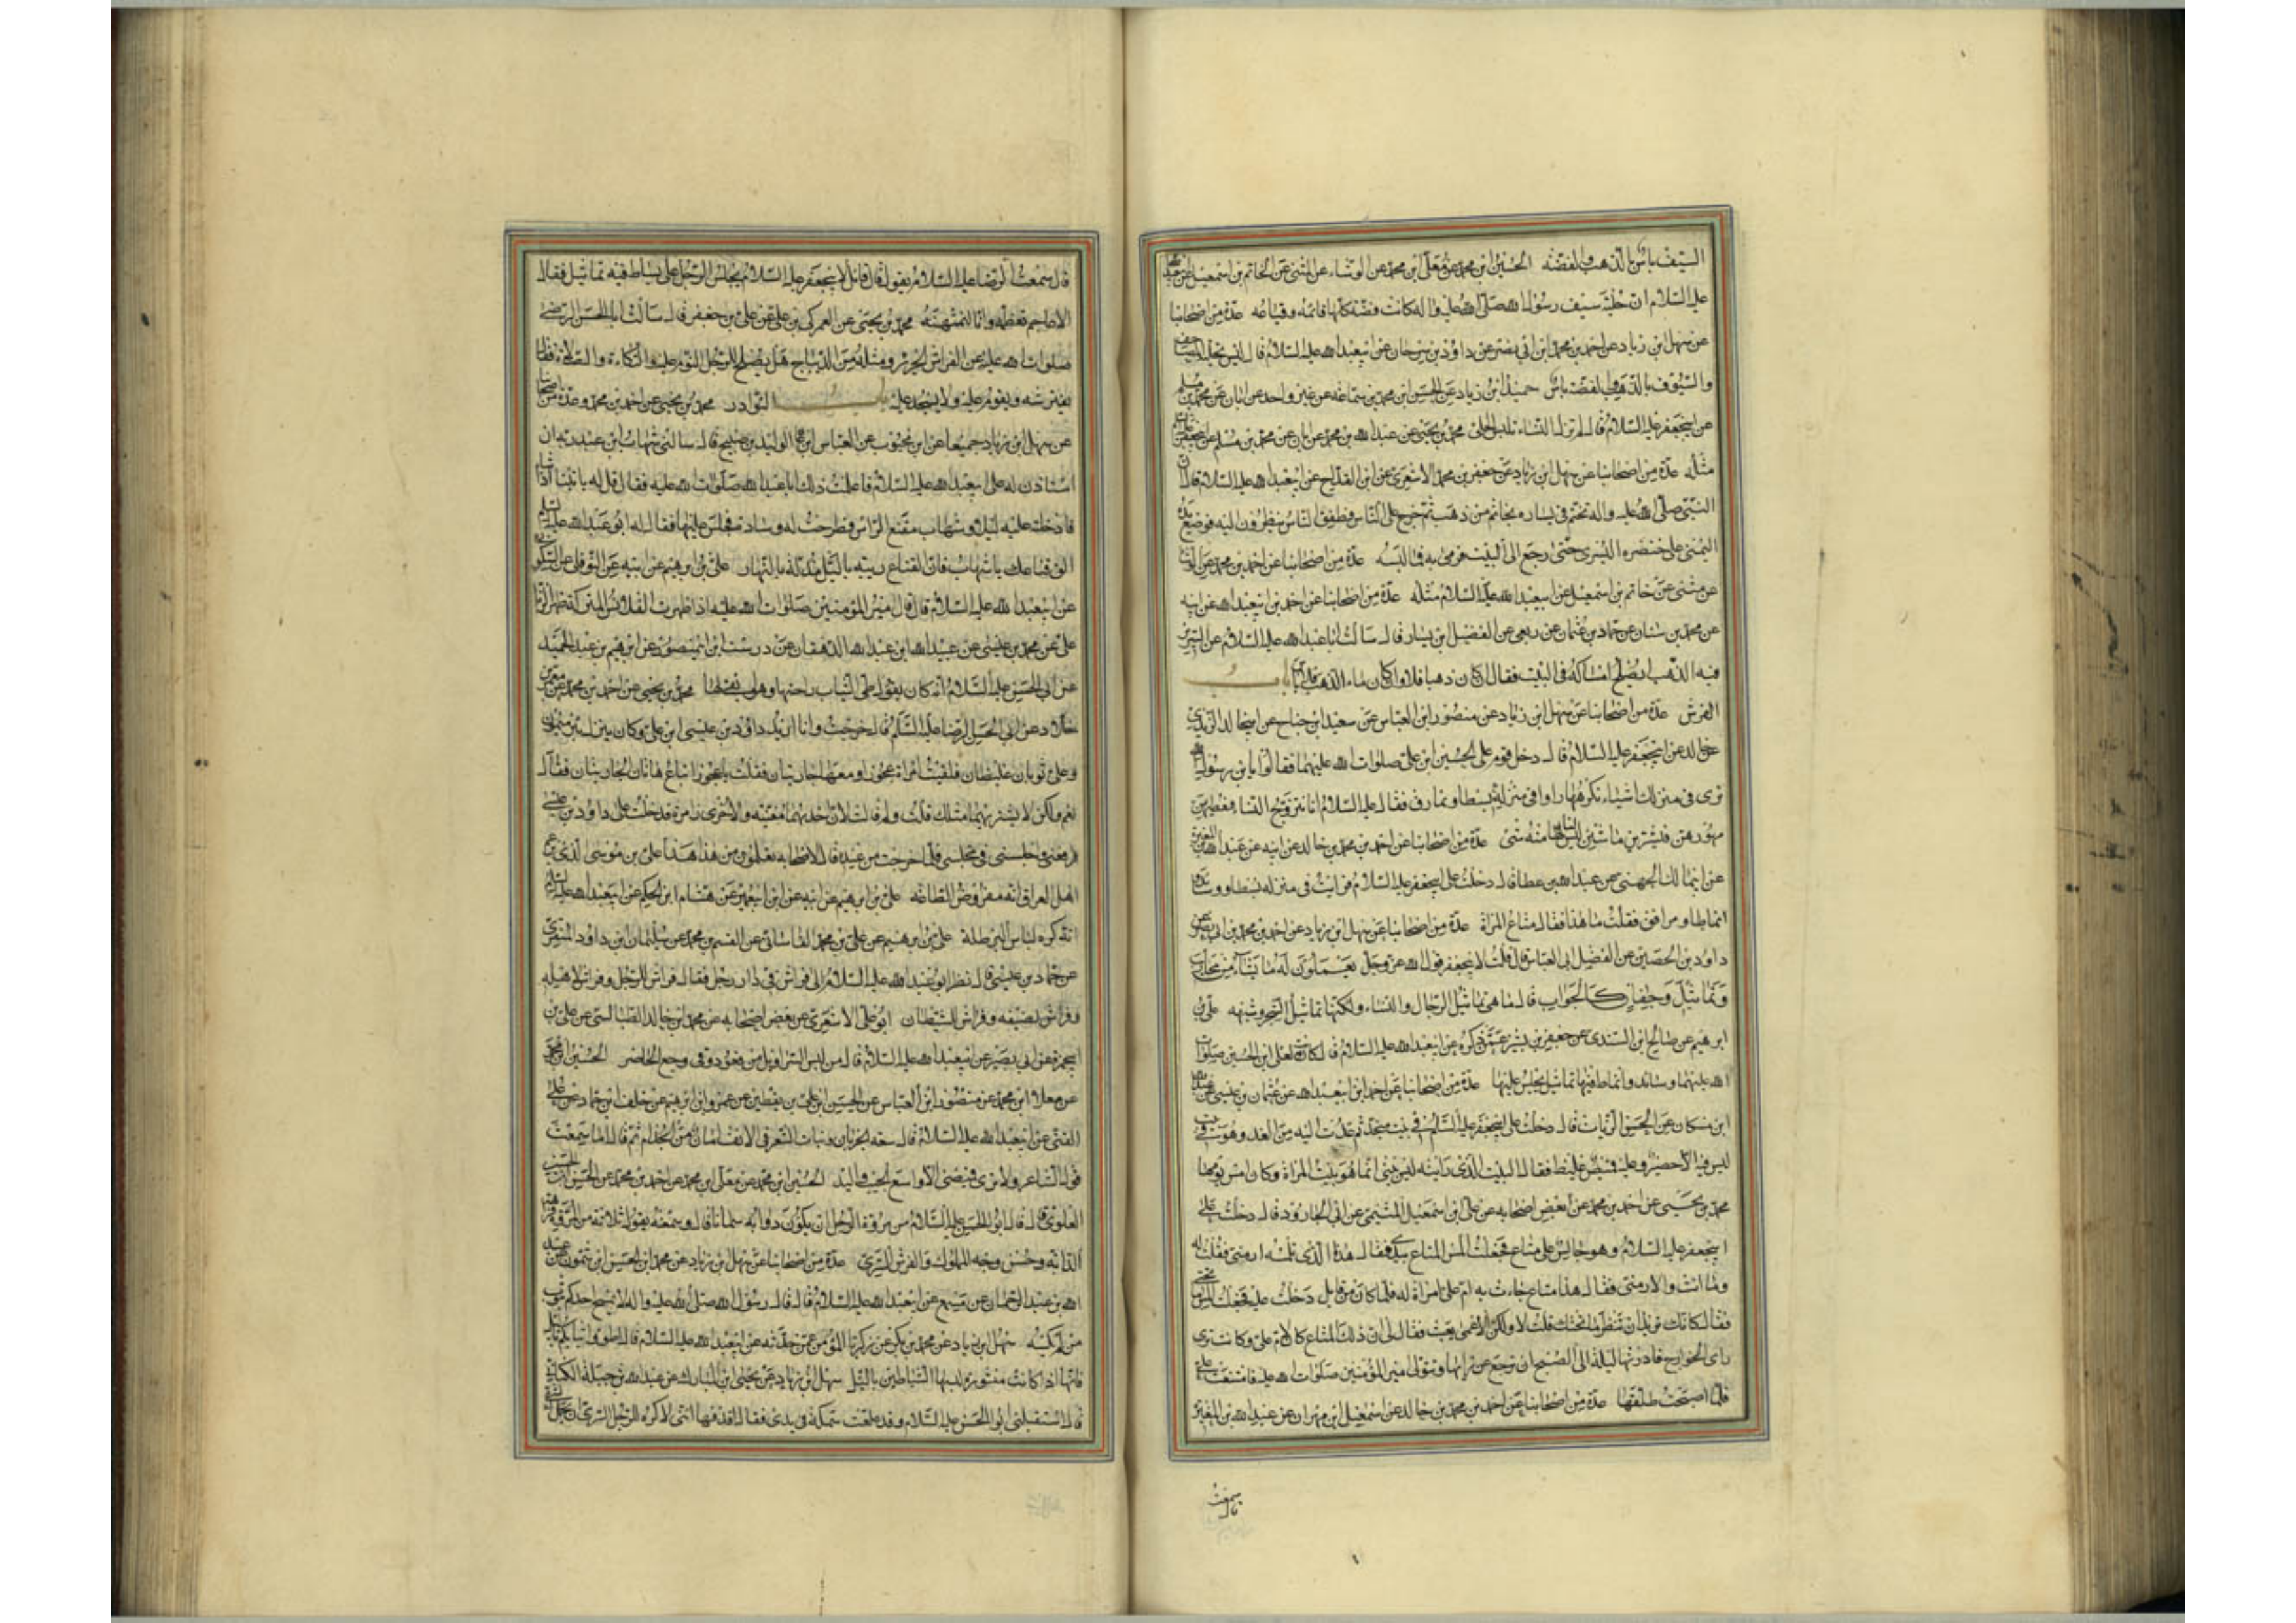 السيف باس بالذهب والفضة الحسين ابن محمد عن معلى ابن محمد عن الوشاء عن المثنى عن حاتم بن اسمعيل عن ابيعبد الله
عليه السلام ان حلية سيف رسول الله صلى الله عليه واله كانت فضة كلها قائمته وقباعه عدة من اصحابنا
عن سهل ابن زياد عن احمد بن محمد ابن ابي نصر عن داود بن سرحان عن ابيعبد الله عليه السلام قال ليس بتحلية المصاحف
والسيوف بالذهب والفضة باس حميد ابن زياد عن الحسن ابن محمد بن سماعة عن غير واحد عن ابان عن محمد بن مسلم
عن ابيجعفر عليه السلام قال لم تزل النساء تلبس الحلي محمد بن يحيى عن عبد الله بن محمد عن ابان عن محمد بن مسلم عن ابيجعفر
مثله عدة من اصحابنا عن سهل ابن زياد عن جعفر بن محمد الاشعري عن ابن القداح عن ابيعبد الله عليه السلام قال ان
النبي صلى الله عليه واله تختم في يساره بخاتم من ذهب ثم خرج على الناس فطفق الناس ينظرون اليه فوضع يده
اليمنى على خنصره اليسرى حتى رجع الى البيت فرمى به فما لبسه عدة من اصحابنا عن احمد بن محمد عن الوشا
عن مثنى عن حاتم بن اسمعيل عن ابيعبد الله عليه السلام مثله عدة من اصحابنا عن احمد بن ابيعبد الله عن ابيه
عن محمد بن سنان عن حماد بن عثمان عن ربعي عن الفضيل ابن يسار قال سالت ابا عبد الله عليه السلام عن السرير
فيه الذهب ايصلح امساكه في البيت فقال ان كان ذهبا فلا وان كان ماء الذهب فلا باس باب
الفرش عدة من اصحابنا عن سهل ابن زياد عن منصور ابن العباس عن سعيد ابن جناح عن ابيخالد الزيدي
عن جابر عن ابيجعفر عليه السلام قال دخل قوم على الحسين ابن علي صلوات الله عليهما فقالوا يابن رسول الله
نرى في منزلك اشياء نكرهها راوا في منزله بسطا ونمارق فقال عليه السلام انا نتزوج النساء فنعطيهن
مهورهن فيشترين ما شئن ليس لنا منه شئ عدة من اصحابنا عن احمد بن محمد بن خالد عن ابيه عن عبد الله بن المغيرة
عن ابيمالك الجهني عن عبد الله بن عطا قال دخلت على ابيجعفر عليه السلام فرايت في منزله بسطا ووسائد
انماطا ومرافق فقلت ما هذا فقال متاع المراة عدة من اصحابنا عن سهل ابن زياد عن احمد بن محمد بن ابي نصر عن
داود بن الحصين عن الفضيل ابي العباس قال قلت لابيجعفر قول الله عز وجل يعملون له ما يشاء من محاريب
وتماثيل وجفان كالجواب قال ما هي تماثيل الرجال والنساء ولكنها تماثيل الشجر وشبهه علي بن
ابرهيم عن صالح ابن السندي عن جعفر بن بشير عمن ذكره عن ابيعبد الله عليه السلام قال كانت لعلي ابن الحسين صلوات
الله عليهما وسائد وانماط فيها تماثيل يجلس عليها عدة من اصحابنا عن احمد ابن ابيعبد الله عن عثمان بن عيسى عن عبد الله
ابن مسكان عن الحسن الزيات قال دخلت على ابيجعفر عليه السلام في بيت منجد ثم عدت اليه من الغد وهو في بيت
ليس فيه الا حصير وعليه قميص غليظ فقال البيت الذي رايته ليس بيتي انما هو بيت المراة وكان امس يومها
محمد بن يحيى عن احمد بن محمد عن بعض اصحابه عن علي ابن اسمعيل الميثمي عن ابي الجارود قال دخلت على
ابيجعفر عليه السلام وهو جالس على متاع فجعلت المس المتاع بيدي فقال هذا الذي تلمسه ارمني فقلت له
وما انت والارمني فقال هذا متاع جاءت به ام علي امراة له فلما كان من قابل دخلت عليه فجعلت المس ما تحتي
فقال كانك تريد ان تنظر ما تحتك قلت لا ولكن الاعمى يعبث فقال لي ان ذلك المتاع كان لام علي وكانت ترى
راي الخوارج فادرتها ليلة الى الصبح ان ترجع عن رايها وتتولى امير المؤمنين صلوات الله عليه فامتنعت علي
فلما اصبحت طلقتها عدة من اصحابنا عن احمد بن محمد بن خالد عن اسمعيل ابن مهران عن عبد الله بن المغيرة
قال سمعت
قال سمعت الرضا عليه السلام يقول قال قائل لابيجعفر عليه السلام يجلس الرجل على بساط فيه تماثيل فقال
الاعاجم تعظمه وانا لنمتهنه محمد بن يحيى عن العمركي بن علي عن علي بن جعفر قال سالت ابا الحسن الرضي
صلوات الله عليه عن الفراش الحرير ومثله من الديباج هل يصلح للرجل النوم عليه والتكاءة والصلاة فقال
يفترشه ويقوم عليه ولا يسجد عليه باب النوادر محمد بن يحيى عن احمد بن محمد وعدة من اصحابنا
عن سهل ابن زياد جميعا عن ابن محبوب عن العباس ابن الوليد بن صبيح قال سالني شهاب ابن عبد ربه ان
استاذن له على ابيعبد الله عليه السلام فاعلمت ذلك ابا عبد الله صلوات الله عليه فقال قل له ياتينا اذا شاء
فادخلته عليه ليلا وشهاب مقنع الراس فطرحت له وسادة فجلس عليها فقال له ابو عبد الله عليه السلام
الق قناعك يا شهاب فان القناع ريبة بالليل مذلة بالنهار علي بن ابرهيم عن ابيه عن النوفلي عن السكوني
عن ابيعبد الله عليه السلام قال قال امير المؤمنين صلوات الله عليه اذا ظهرت القلانس المتركة ظهر الزنا
علي عن محمد بن عيسى عن عبيد الله ابن عبد الله الدهقان عن درست ابن ابي منصور عن ابرهيم بن عبد الحميد
عن ابي الحسن عليه السلام انه كان يقول طي الثياب راحتها وهو ابقى لها محمد بن يحيى عن احمد بن محمد عن معمر بن
خلاد عن ابي الحسن الرضا عليه السلام قال خرجت وانا اريد داود بن عيسى ابن علي وكان ينزل بئر ميمون
وعلي ثوبان غليظان فلقيت امراة عجوزا ومعها جاريتان فقلت يا عجوز اتباع هاتان الجاريتان فقال
نعم ولكن لا يشتريهما مثلك قلت ولم قالت لان احديهما مغنية والاخرى زامرة فدخلت على داود بن عيسى
فرفعني واجلسني في مجلسي فلما خرجت من عنده قال لاصحابه تعلمون من هذا هذا علي بن موسى الذي يزعم
اهل العراق انه مفروض الطاعة علي بن ابرهيم عن ابيه عن ابن ابيعمير عن هشام ابن الحكم عن ابيعبد الله عليه السلام
انه كره لباس البرطلة علي بن ابرهيم عن علي بن محمد القاساني عن القسم بن محمد عن سليمان ابن داود المنقري
عن حماد بن عيسى قال نظر ابو عبد الله عليه السلام الى فراش في دار رجل فقال فراش للرجل وفراش لاهله
وفراش لضيفه وفراش للشيطان ابو علي الاشعري عن بعض اصحابه عن محمد ابن خالد الطيالسي عن علي بن
ابيحمزة عن ابي بصير عن ابيعبد الله عليه السلام قال من لبس السراويل من قعود وقي وجع الخاصر الحسين ابن محمد
عن معلا ابن محمد عن منصور ابن العباس عن الحسن ابن علي بن يقطين عن عمرو ابن ابرهيم عن خلف ابن حماد عن علي
القمي عن ابيعبد الله عليه السلام قال سعة الجربان ونبات الشعر في الانف امان من الجذام ثم قال اما سمعت
قول الشاعر ولا ترى قميصي الا واسع الجيب واليد الحسين ابن محمد عن معلى ابن محمد عن احمد بن محمد عن الحسن ابن الحسين
العلوي قال قال ابو الحسن عليه السلام من مروة الرجل ان يكون دوابه سمانا قال وسمعته يقول ثلاثة من المروة فراهة
الدابة وحسن وجه المملوك والفرش السري عدة من اصحابنا عن سهل ابن زياد عن محمد ابن الحسن ابن شمون عن عبد
الله بن عبد الرحمان عن مسمع عن ابيعبد الله عليه السلام قال قال رسول الله صلى الله عليه واله لا يمسح احدكم بثوب
من لم يكسه سهل ابن زياد عن محمد بن بكر عن زكريا المؤمن عمن حدثه عن ابيعبد الله عليه السلام قال اطووا ثيابكم بالليل
فانها اذا كانت منشورة لبسها الشياطين بالليل سهل ابن زياد عن يحيى ابن المبارك عن عبد الله بن جبلة الكناني
قال استقبلني ابو الحسن عليه السلام وقد علقت سمكة في يدي فقال اقذفها انني لاكره للرجل السري ان يحمل الشئ